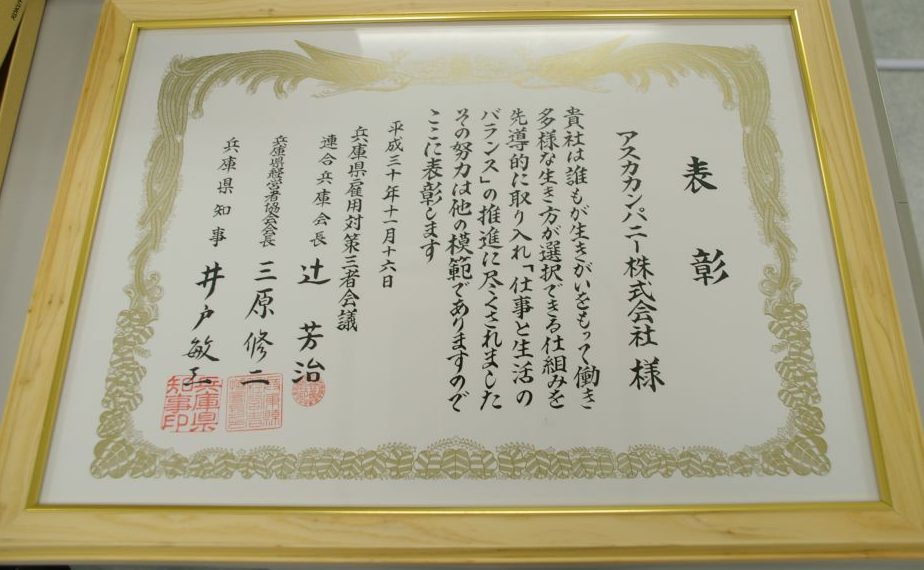 表彰
アスカカンパニー株式会社 様
貴社は誰もが生きがいをもって働き
多様な生き方が選択できる仕組みを
先導的に取り入れ「仕事と生活の
バランス」の推進に尽くされました
その努力は他の模範でありますので
ここに表彰します
平成三十年十一月十六日
兵庫県雇用対策三者会議
連合兵庫会長 辻 芳治
兵庫県経営者協会会長 三原修二
兵庫県知事 井戸敏三
兵庫県知事印